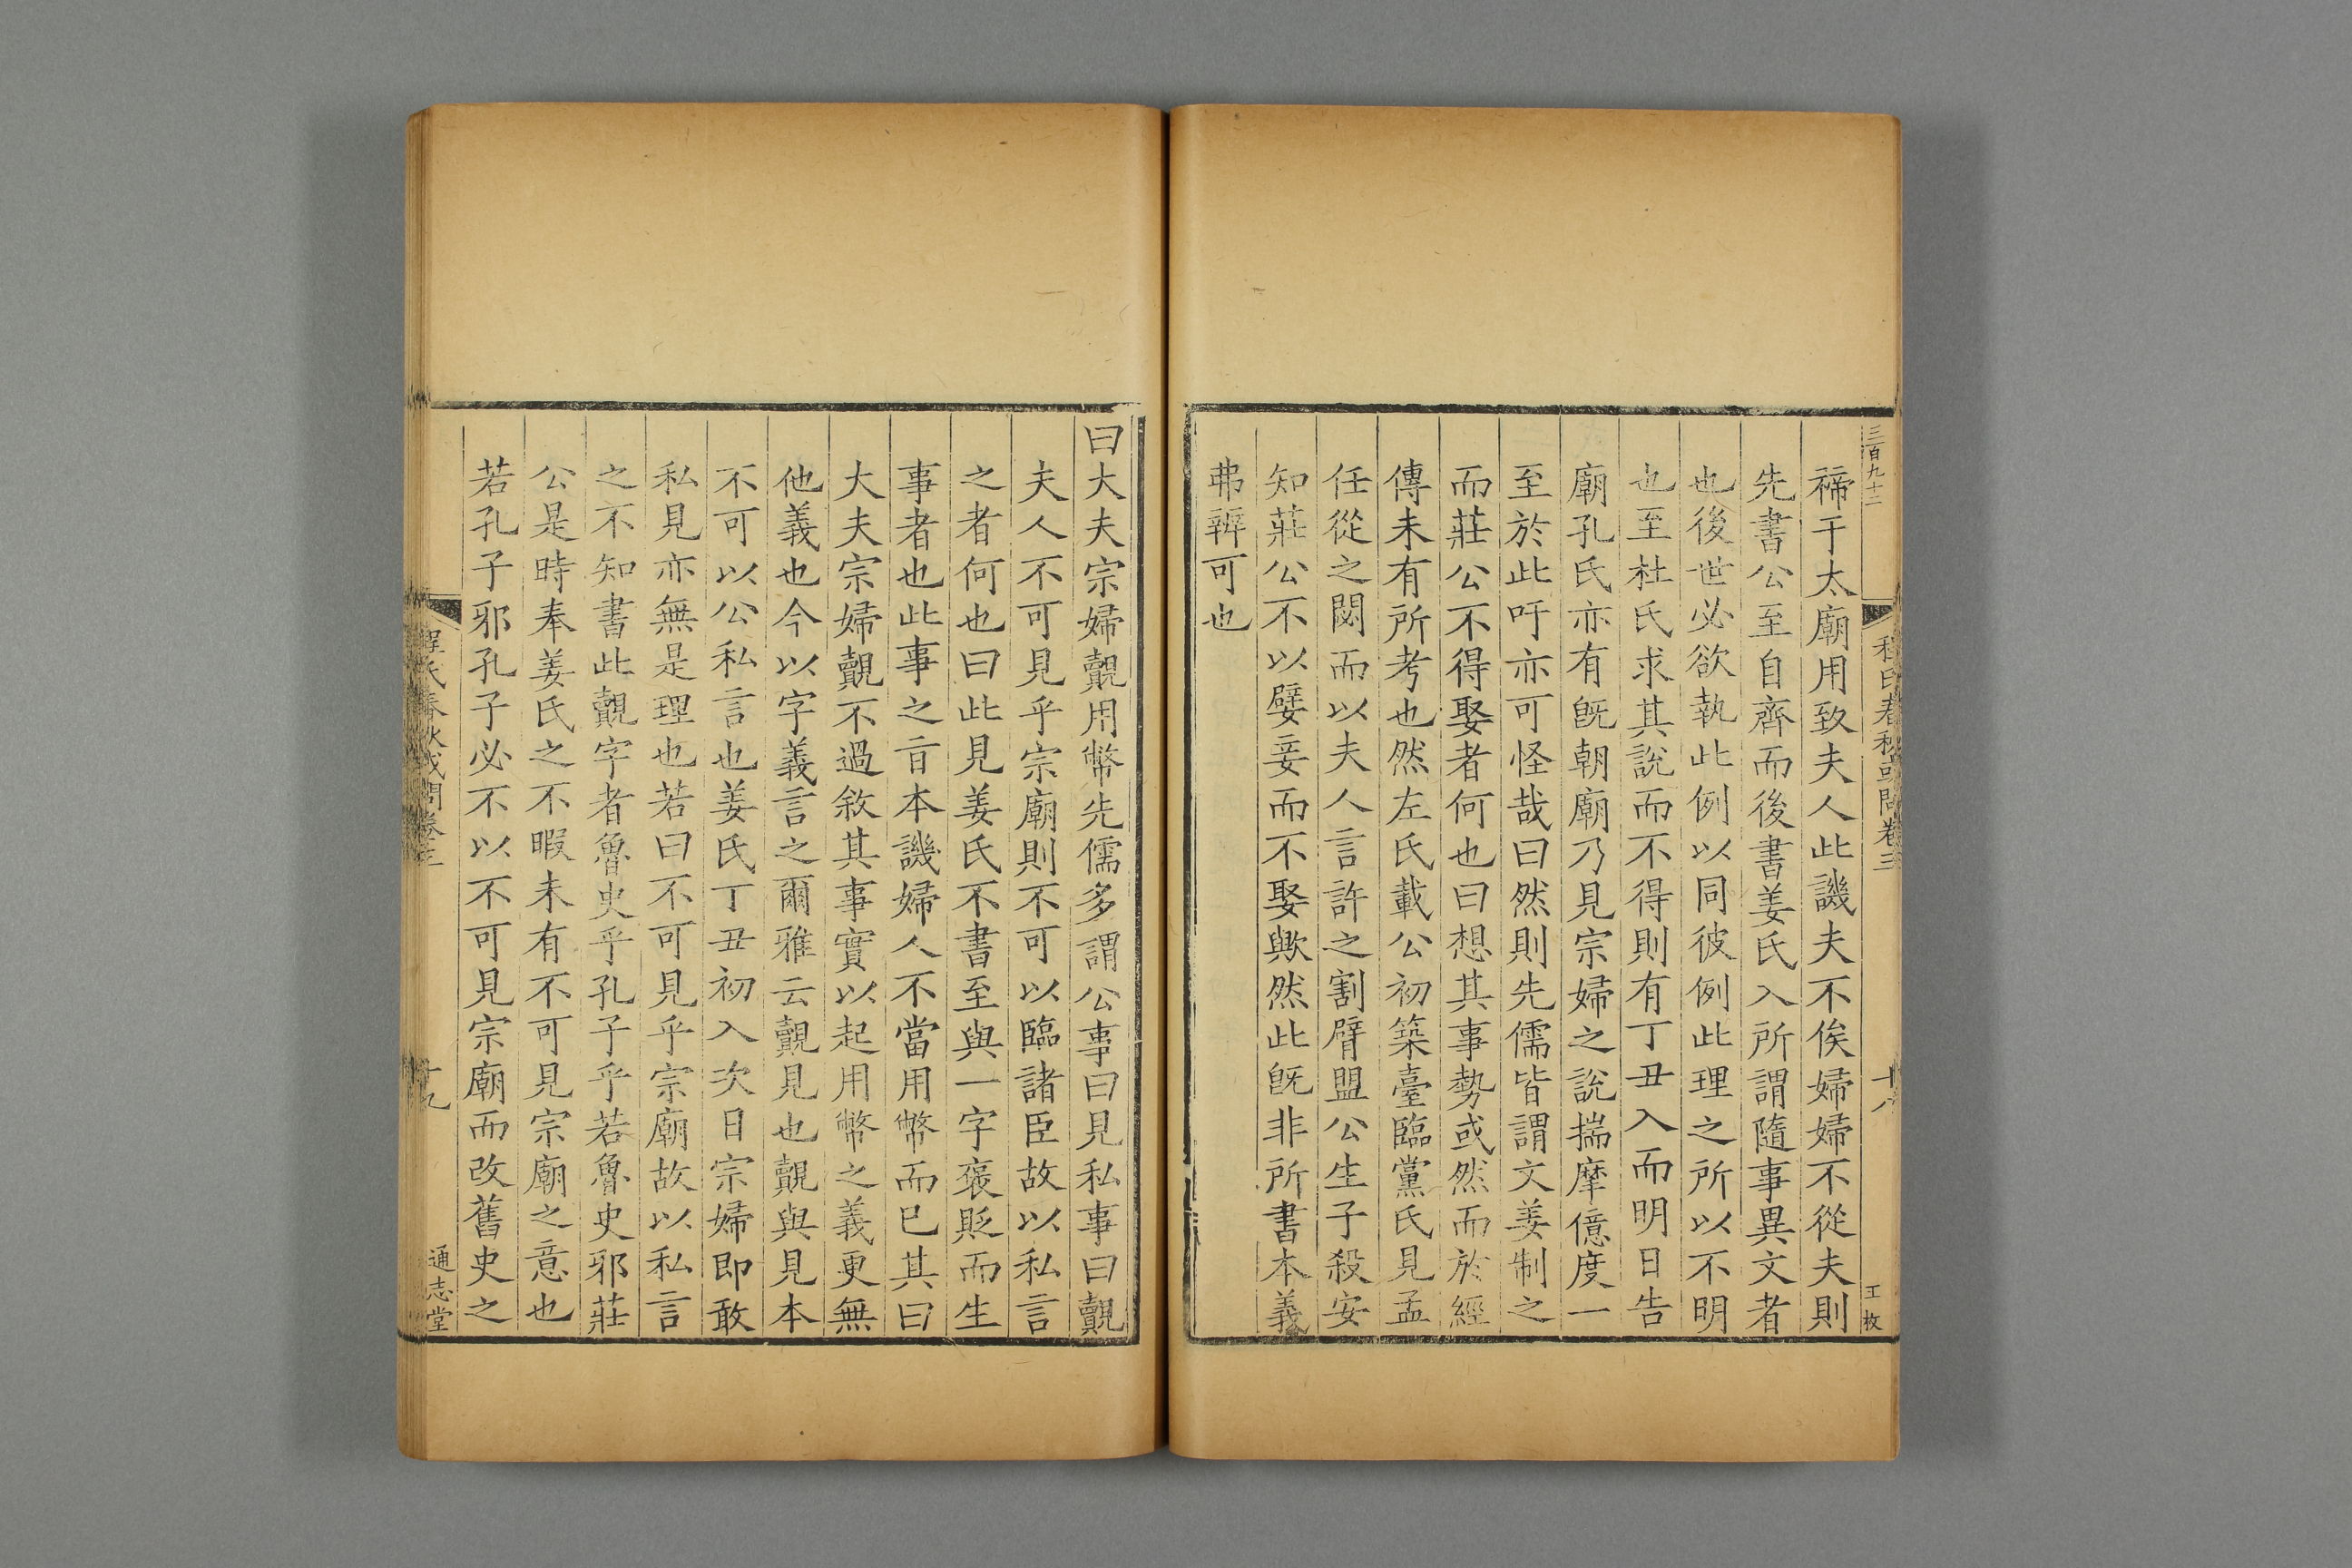 三百九十二
程氏春秋或問卷三
十八
王枚
禘于太廟用致夫人此譏夫不俟婦婦不從夫則
先書公至自齊而後書姜氏入所謂隨事異文者
也後世必欲執此例以同彼例此理之所以不明
也至杜氏求其說而不得則有丁丑入而明日告
廟孔氏亦有旣朝廟乃見宗婦之說揣摩億度一
至於此吁亦可怪哉曰然則先儒皆謂文姜制之
而莊公不得娶者何也曰想其事勢或然而於經
傳未有所考也然左氏載公初築臺臨黨氏見孟
任從之閟而以夫人言許之割臂盟公生子殺安
知莊公不以嬖妾而不娶歟然此旣非所書本義
弗辨可也
曰大夫宗婦覿用幣先儒多謂公事曰見私事曰覿
夫人不可見乎宗廟則不可以臨諸臣故以私言
之者何也曰此見姜氏不書至與一字褒貶而生
事者也此事之旨本譏婦人不當用幣而已其曰
大夫宗婦覿不過敘其事實以起用幣之義更無
他義也今以字義言之爾雅云覿見也覿與見本
不可以公私言也姜氏丁丑初入次日宗婦卽敢
私見亦無是理也若曰不可見乎宗廟故以私言
之不知書此覿字者魯史乎孔子乎若魯史邪莊
公是時奉姜氏之不暇未有不可見宗廟之意也
若孔子邪孔子必不以不可見宗廟而改舊史之
程氏春秋或問卷三
十九
通志堂